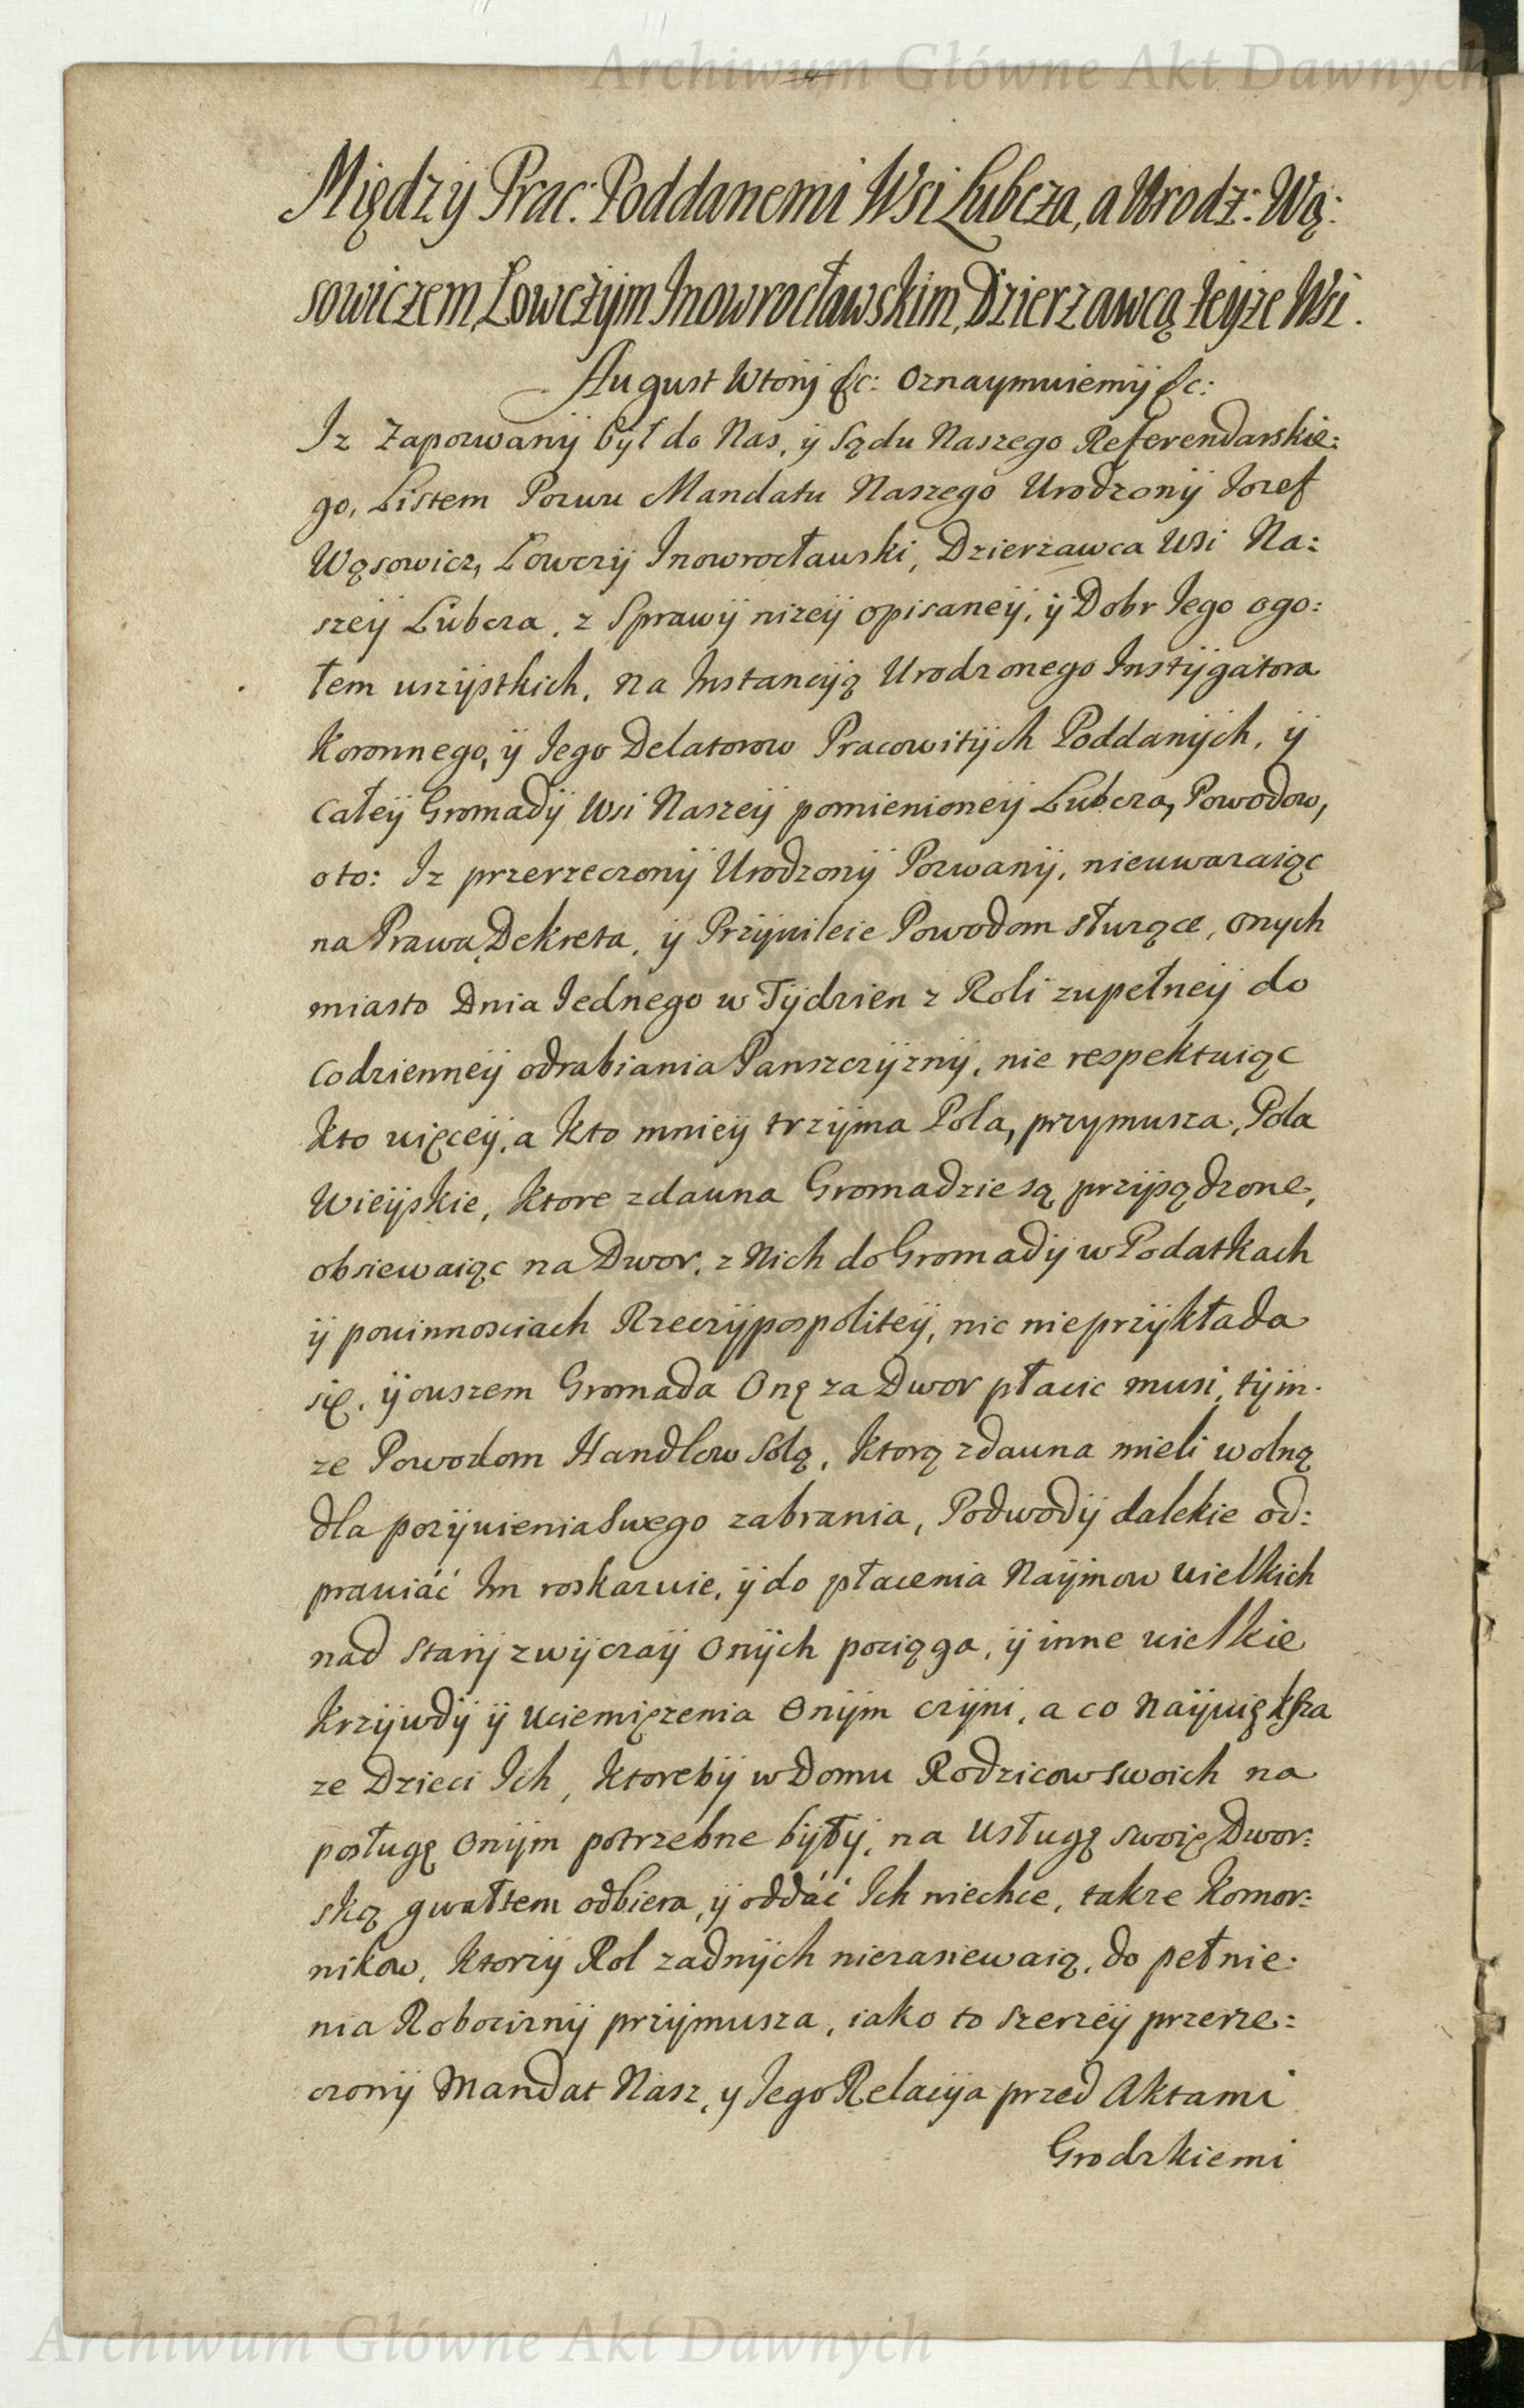 Archiwum Główne Akt Dawnych
Między Prac: Poddanemi Wsi Lubcza, a Urodz: Wą:
sowiczem, Łowczym Inowrocławskim, Dzierzawcą teyże Wsi.
August Wtory &c: Oznaymuiemy &c:
Iz Zapozwany był do Nas, y Sądu Naszego Referendarskie:
go, Listem Pozwu Mandatu Naszego Urodzony Iozef
Wąsowicz, Łowczy Inowrocławski, Dzierzawca Wsi Na:
szey Lubcza, z Sprawy nizey opisaney, y Dobr Iego ogo:
łem wszystkich, na Instancyą Urodzonego Instygatora
Koronnego, y Iego Delatorow Pracowitych Poddanych, y
Całey Gromady Wsi Naszey pomienioney Lubcza, Powodow,
oto: Iz przerzeczony Urodzony Pozwany, nieuwazaiąc
na Prawa, Dekreta, y Przywileie Powodom słuzące, onych
miasto Dnia Iednego w Tydzien z Roli zupełney do
codzienney odrabiania Panszczyzny, nie respektuiąc
kto więcey, a kto mniey trzyma Pola, przymusza, Pola
Wieyskie, ktore zdawna Gromadzie są przysądzone,
obsiewaiąc na Dwor, z Nich do Gromady w Podatkach
y powinnosciach Rzeczypospolitey, nic nieprzykłada
się, y owszem Gromada Onę za Dwor płacic musi, tym:
ze Powodom Handlow Solą, ktorą zdawna mieli wolną
dla pozywienia Swego zabrania, Podwody dalekie od:
prawiáć Im roskazuie, y do płacenia Naymow wielkich
nad Stary zwyczay Onych pociąga, y inne wielkie
krzywdy y uciemięzenia Onym czyni, a co naywiększa
ze Dzieci Ich, ktoreby w Domu Rodzicow swoich na
posługę Onym potrzebne były, na Usługę swoię Dwor:
ską gwałtem odbiera, y oddáć Ich niechce, takze Komor:
nikow, ktorzy Rol zadnych niezasiewaią, do pełnie:
nia Robocizny przymusza, iako to szerzey przerze:
czony Mandat Nasz, y Iego Relacya przed Aktami
Grodzkiemi
Archiwum Główne Akt Dawnych